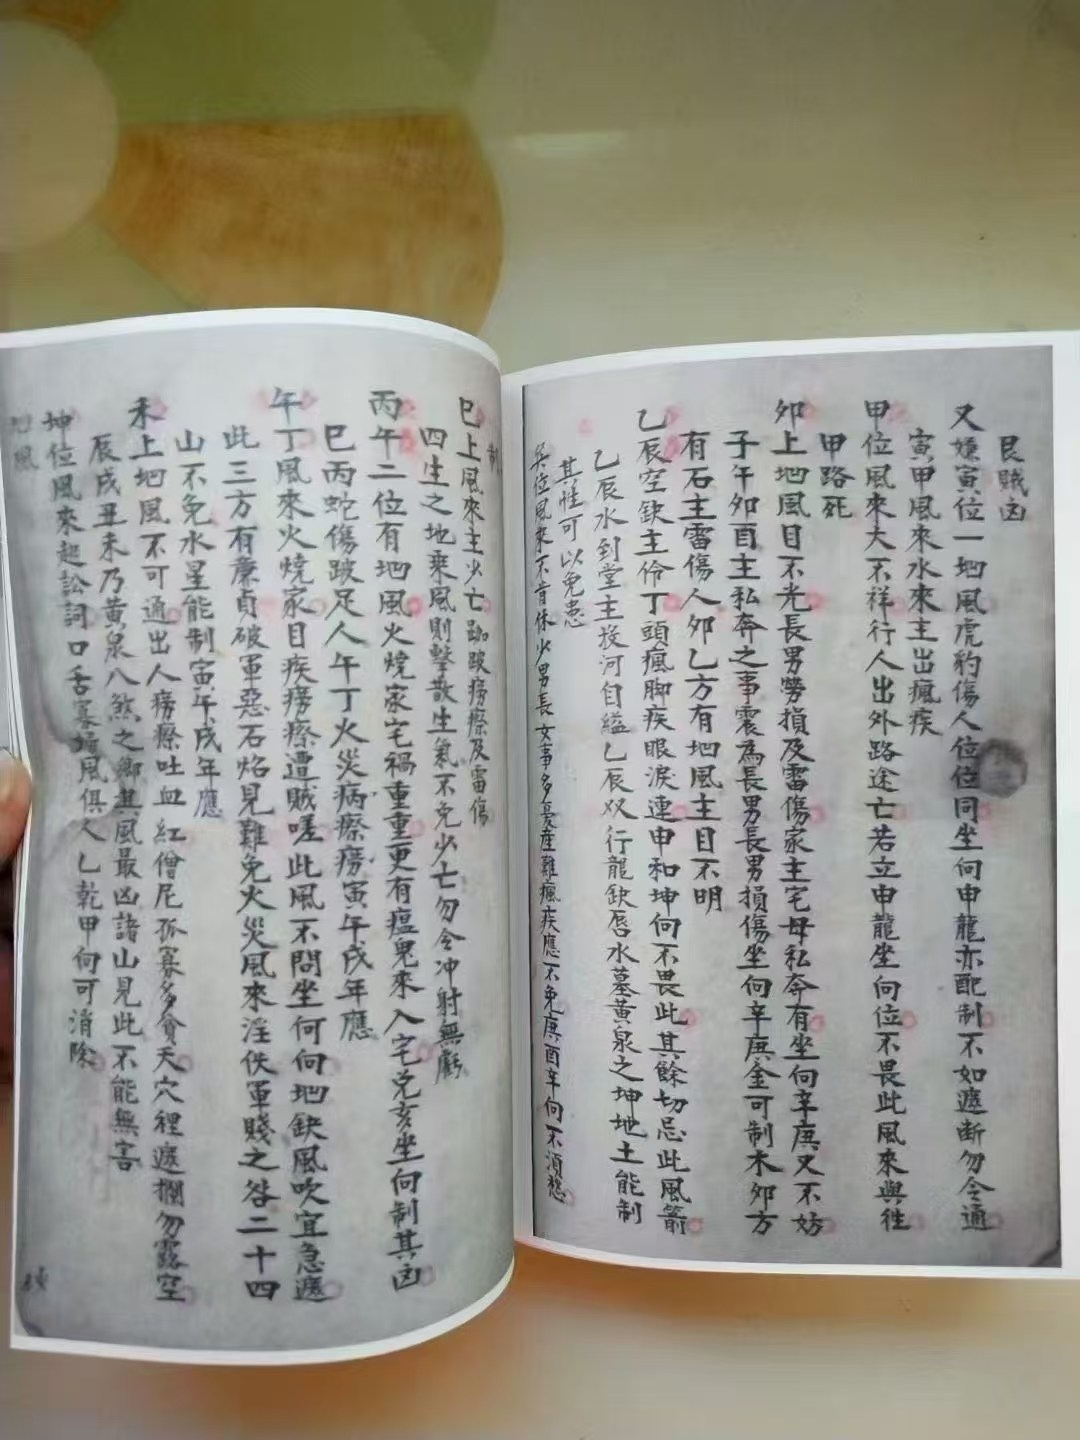 艮賊凶
又嫌寅位一地風虎豹傷人位位同坐向申龍亦配制不如遮断勿令通
寅甲風來水來主出瘋疾
甲位風來大不祥行人出外路途亡若立申龍坐向位不畏此風來與徃
甲路死
夘上地風目不光長男勞損及雷傷家主宅母私奔有坐向辛庚又不妨
子午夘酉主私奔之事震為長男長男損傷坐向辛庚金可制木夘方
有石主雷傷人夘乙方有地風主目不明
乙辰空缺主伶丁頭瘋脚疾眼淚連申和坤向不畏此其餘切忌此風箭
乙辰水到堂主投河自縊乙辰双行龍缺唇水墓黄泉之坤地土能制
其性可以免患
巽位風來不肯休少男長女事多憂產難瘋疾應不免庚酉辛向不須愁
制
巳上風來主少亡跏跛癆瘵及雷傷
四生之地乘風則擊散生氣不免少亡勿令冲射無虧
丙午二位有地風火燒家宅禍重重更有瘟鬼來入宅兑亥坐向制其凶
巳丙蛇傷跛足人午丁火災病瘵癆寅午戌年應
午丁風來火燒家目疾癆瘵遭賊嗟此風不問坐何向地缺風吹宜急遮
此三方有廉貞破軍惡石焰見難免火災風來淫佚軍賤之咎二十四
山不免水星能制寅午戌年應
未上地風不可通出人癆瘵吐血紅僧尼孤寡多貧夭穴裡遮攔勿露空
辰戌丑未乃黄泉八煞之鄉其風最凶諸山見此不能無害
坤位風來起訟詞口舌寡 風俱人乙乾甲向可消除
風